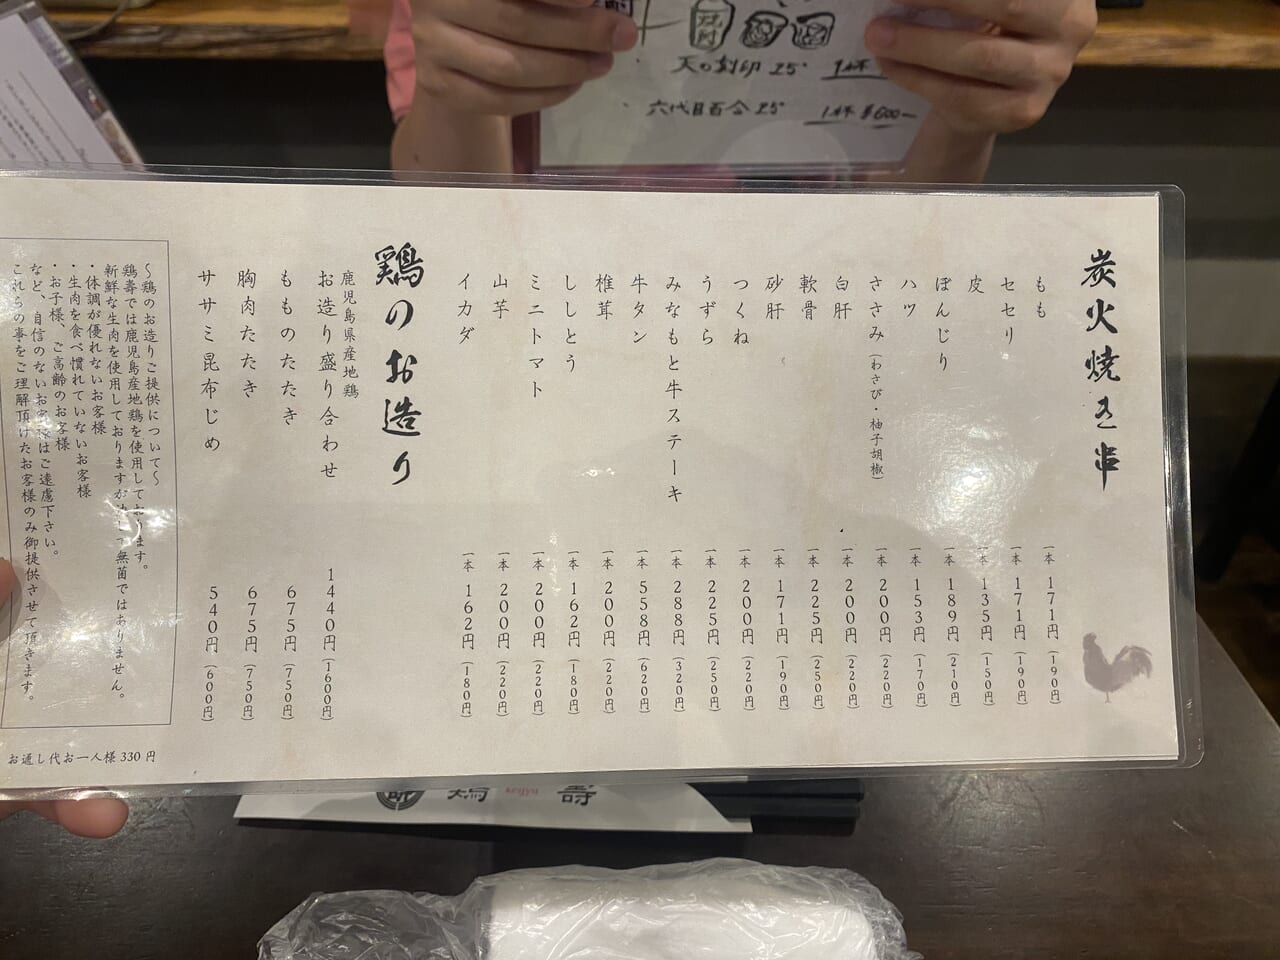 天の刻印 25°
六代目百合 25° 1杯 ¥600-
炭火焼き串
もも 一本 171円 (190円)
セセリ 一本 171円 (190円)
皮 一本 135円 (150円)
ぼんじり 一本 189円 (210円)
ハツ 一本 153円 (170円)
ささみ (わさび・柚子胡椒) 一本 200円 (220円)
白肝 一本 200円 (220円)
軟骨 一本 225円 (250円)
砂肝 一本 171円 (190円)
つくね 一本 200円 (220円)
うずら 一本 225円 (250円)
みなもと牛ステーキ 一本 288円 (320円)
牛タン 一本 558円 (620円)
椎茸 一本 200円 (220円)
ししとう 一本 162円 (180円)
ミニトマト 一本 200円 (220円)
山芋 一本 200円 (220円)
イカダ 一本 162円 (180円)
鶏のお造り
鹿児島県産地鶏
お造り盛り合わせ 1440円 (1600円)
もものたたき 675円 (750円)
胸肉たたき 675円 (750円)
ササミ昆布じめ 540円 (600円)
〜鶏のお造りご提供について〜
鶏壽では鹿児島産地鶏を使用しております。
新鮮な生肉を使用しておりますが決して無菌ではありません。
・体調が優れないお客様
・生肉を食べ慣れていないお客様
・お子様、ご高齢のお客様
など、自信のないお客様はご遠慮下さい。
これらの事をご理解頂けたお客様のみ御提供させて頂きます。
お通し代お一人様 330 円
鶏 keijyu 壽